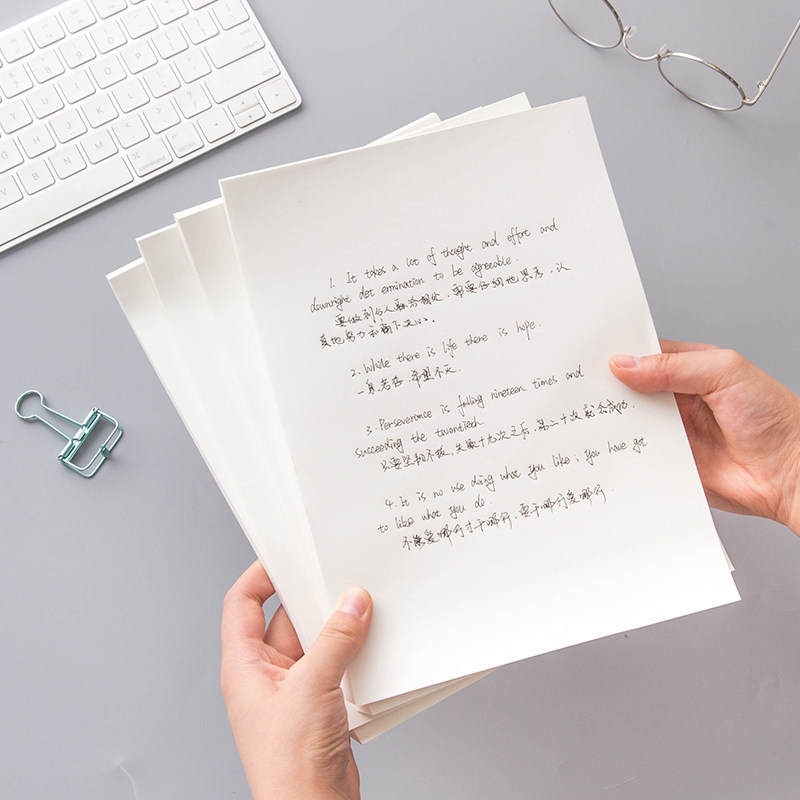 1. It takes a lot of thought and effort and
downright determination to be agreeable.
要做到与人融洽相处,需要仔细地思考,认
真地努力和痛下决心.
2. While there is life there is hope.
一息若存,希望不灭.
3. Perseverance is failing nineteen times and
succeeding the twentieth
只要坚韧不拔,失败十九次之后,第二十次就会成功.
4. It is no use doing what you like; you have got
to like what you do.
不能爱哪行才干哪行,要干哪行爱哪行.